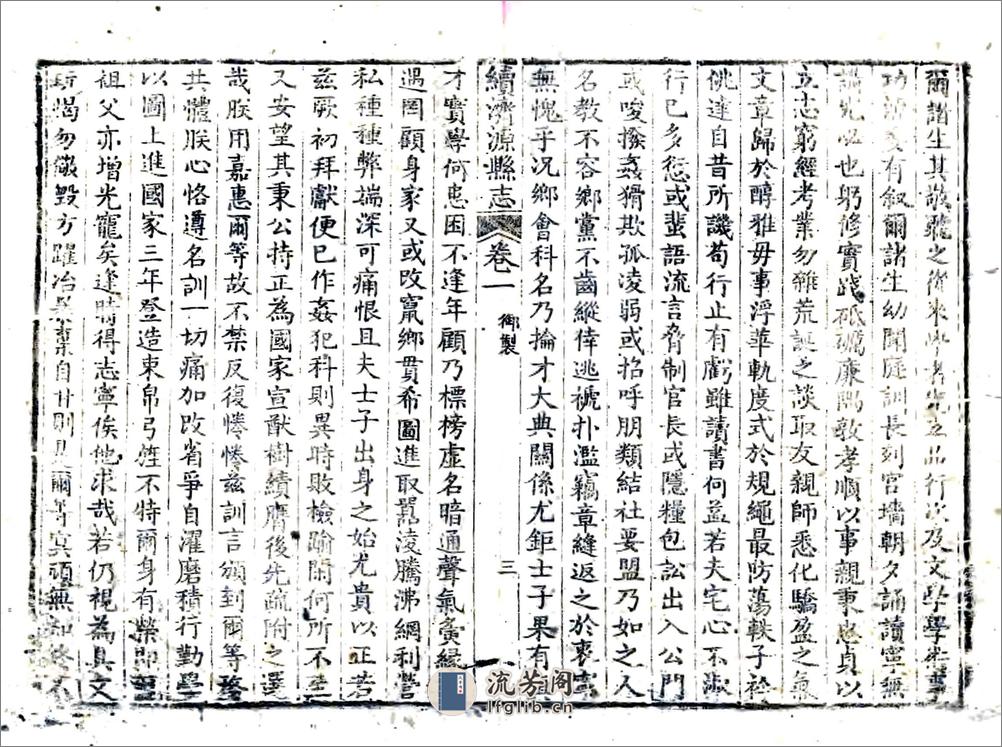 爾諸生其敬聽之從來學者先立品行次及文學學術事
功源委有叙爾諸生幼聞庭訓長列宮墻朝夕誦讀寧無
講究必也躬修實踐砥礪廉隅敦孝順以事親秉忠貞以
立志窮經考業勿雜荒誕之談取友親師悉化驕盈之氣
文章歸於醇雅毋事浮華軌度式於規繩最防蕩軼子衿
佻達自昔所譏苟行止有虧雖讀書何益若夫宅心不淑
行已多愆或蜚語流言脅制官長或隱糧包訟出入公門
或唆撥姦猾欺孤凌弱或招呼朋類結社要盟乃如之人
名教不容鄉黨不齒縱倖逃褫扑濫竊章縫返之於衷寧
無愧乎况鄉會科名乃掄才大典關係尤鉅士子果有真
續濟源縣志 卷一 御製 三
才實學何患困不逢年顧乃標榜虛名暗通聲氣夤緣
遇罔顧身家又或改竄鄉貫希圖進取囂凌騰沸網利營
私種種弊端深可痛恨且夫士子出身之始尤貴以正若
兹厥初拜獻便已作姦犯科則異時敗檢踰閑何所不至
又安望其秉公持正為國家宣猷樹績膺後先疏附之選
哉朕用嘉惠爾等故不禁反復惓惓兹訓言頒到爾等務
共體朕心恪遵名訓一切痛加改省爭自濯磨積行勤學
以圖上進國家三年登造束帛弓旌不特爾身有榮即
祖父亦增光寵矣逢時得志寧俟他求哉若仍視為具文
玩愒勿儆毀方躍冶暴棄自甘則是爾等冥頑無知終不
流芳阁
lfglib.cn